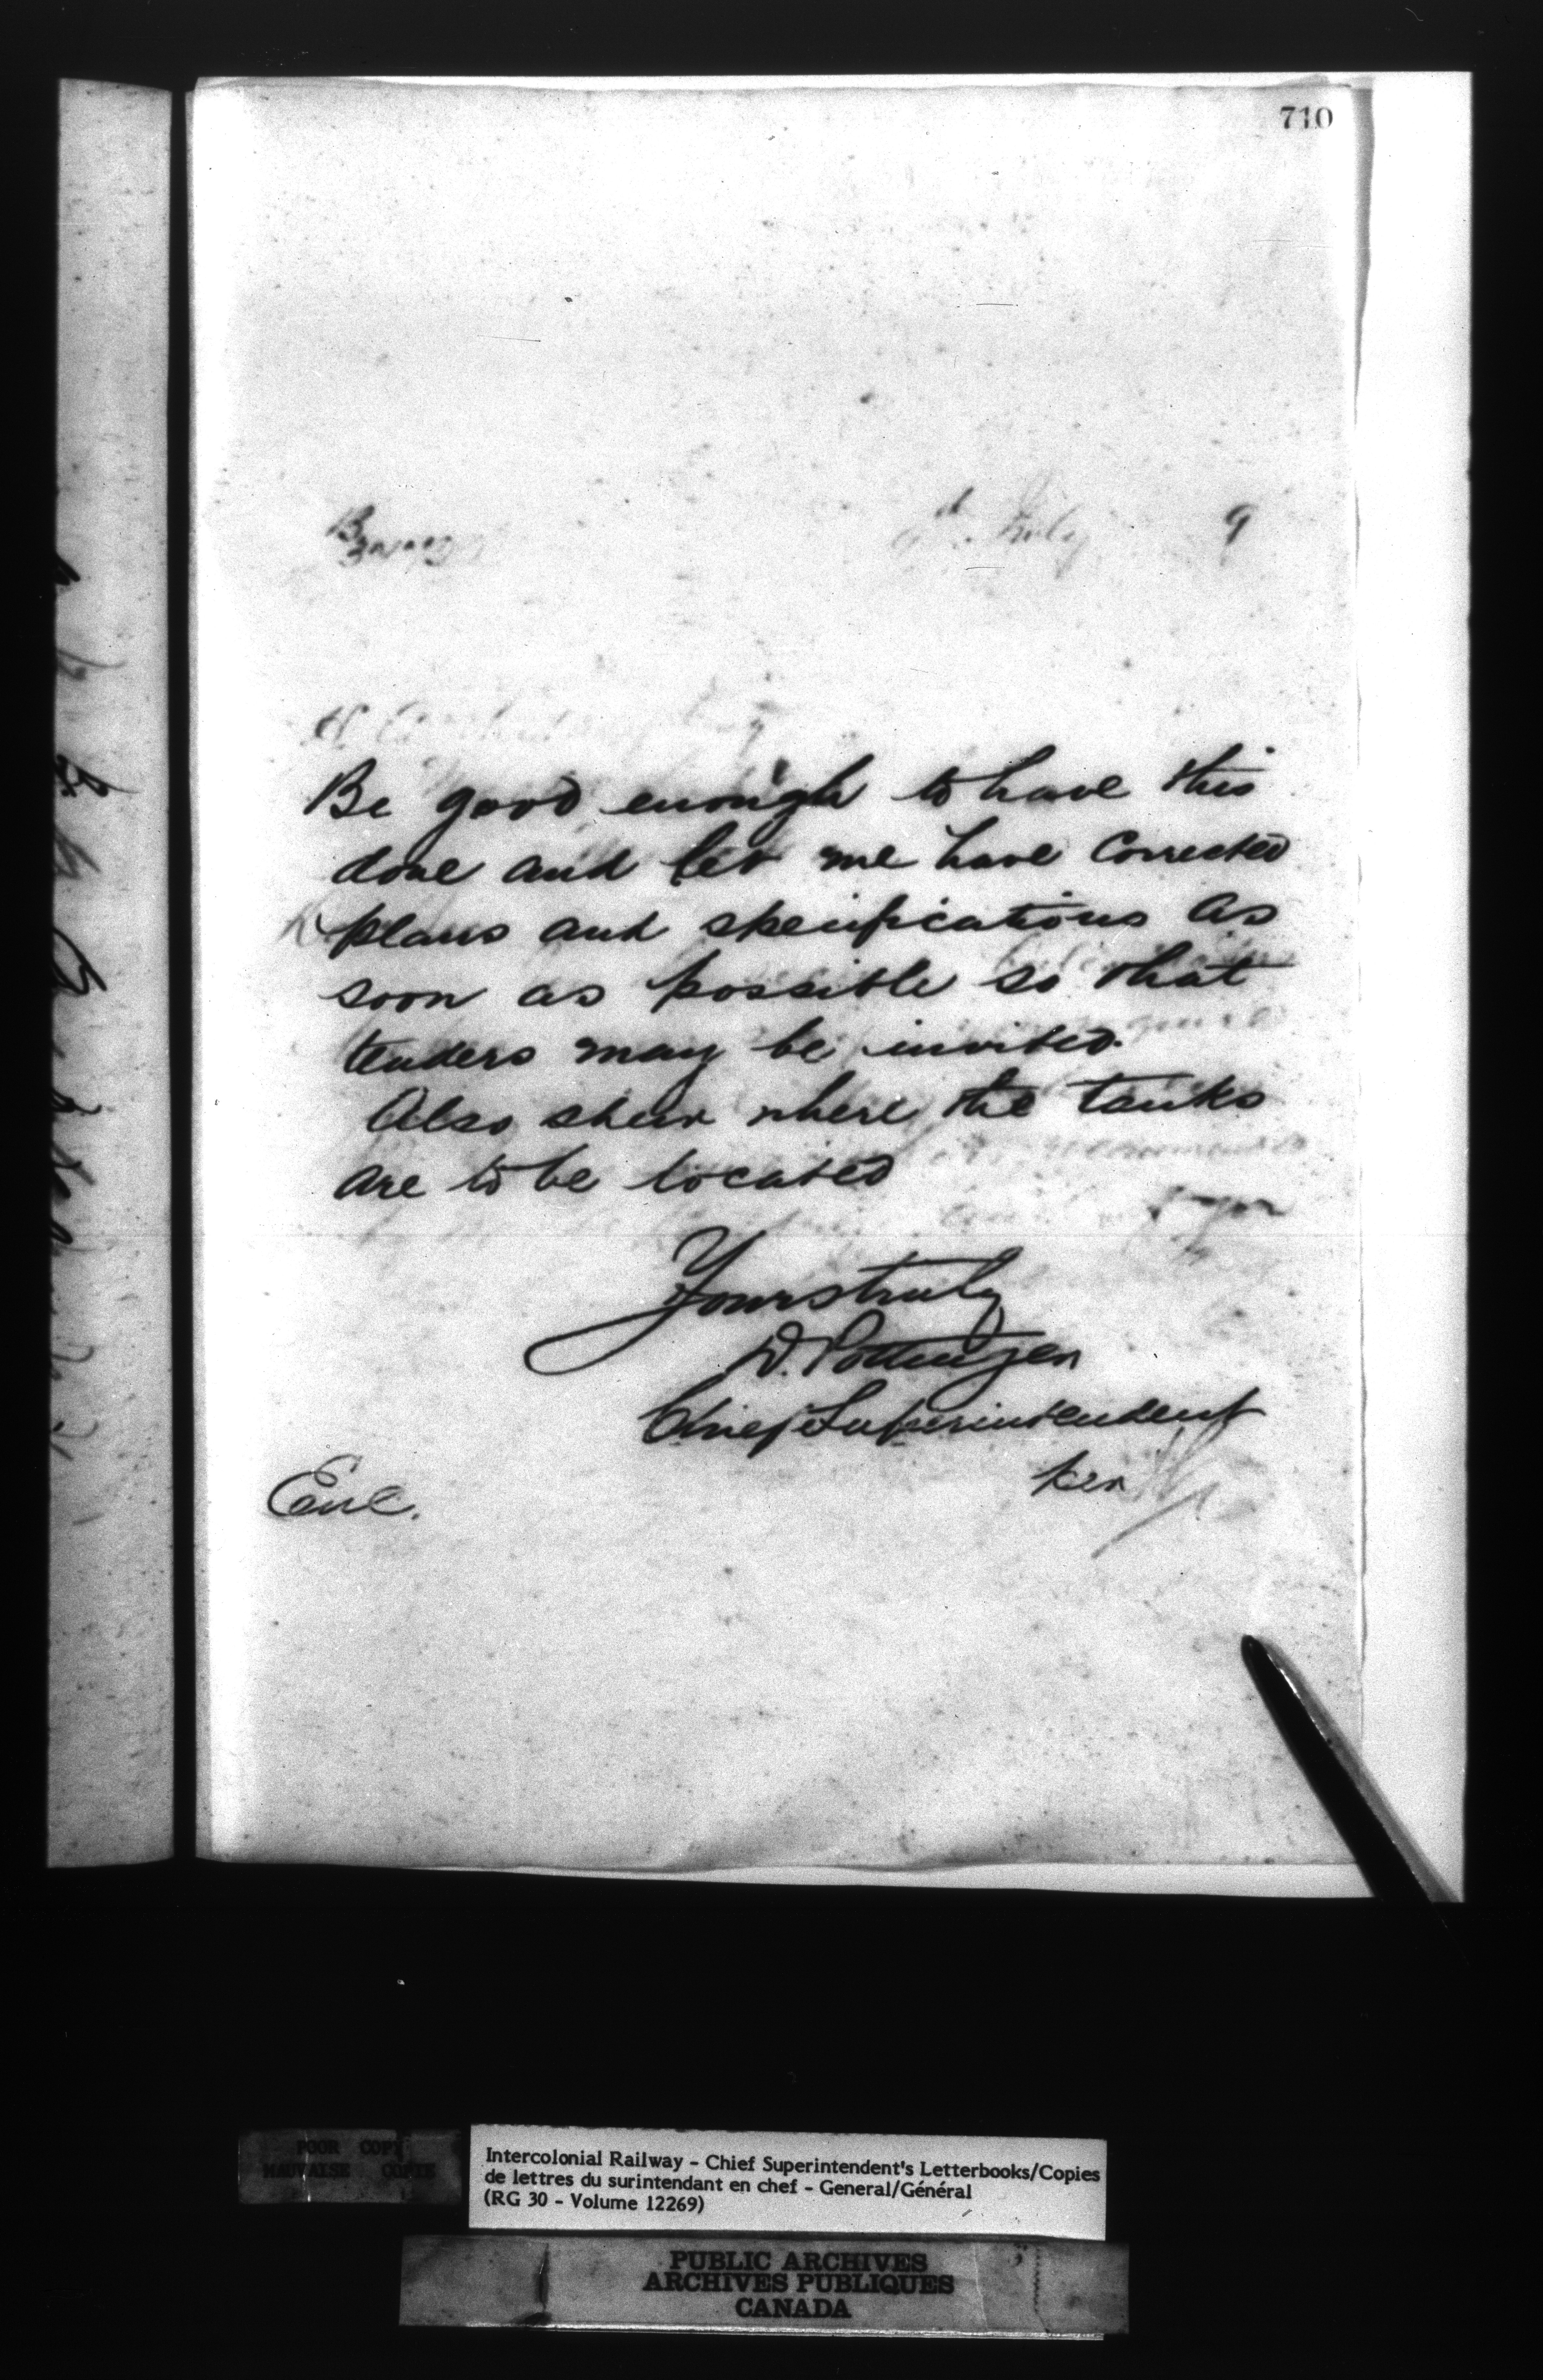 710
9
Be good enough to have this
done and let me have corrected
plans and specifications as
soon as possible so that
tenders may be invited.
Also shew where the tanks
are to be located
Yours truly
D. Pottinger
Chief Superintendent
per
Enc.
POOR COPY
MAUVAISE COPIE
Intercolonial Railway - Chief Superintendent's Letterbooks/Copies
de lettres du surintendant en chef - General/Général
(RG 30 - Volume 12269)
PUBLIC ARCHIVES
ARCHIVES PUBLIQUES
CANADA